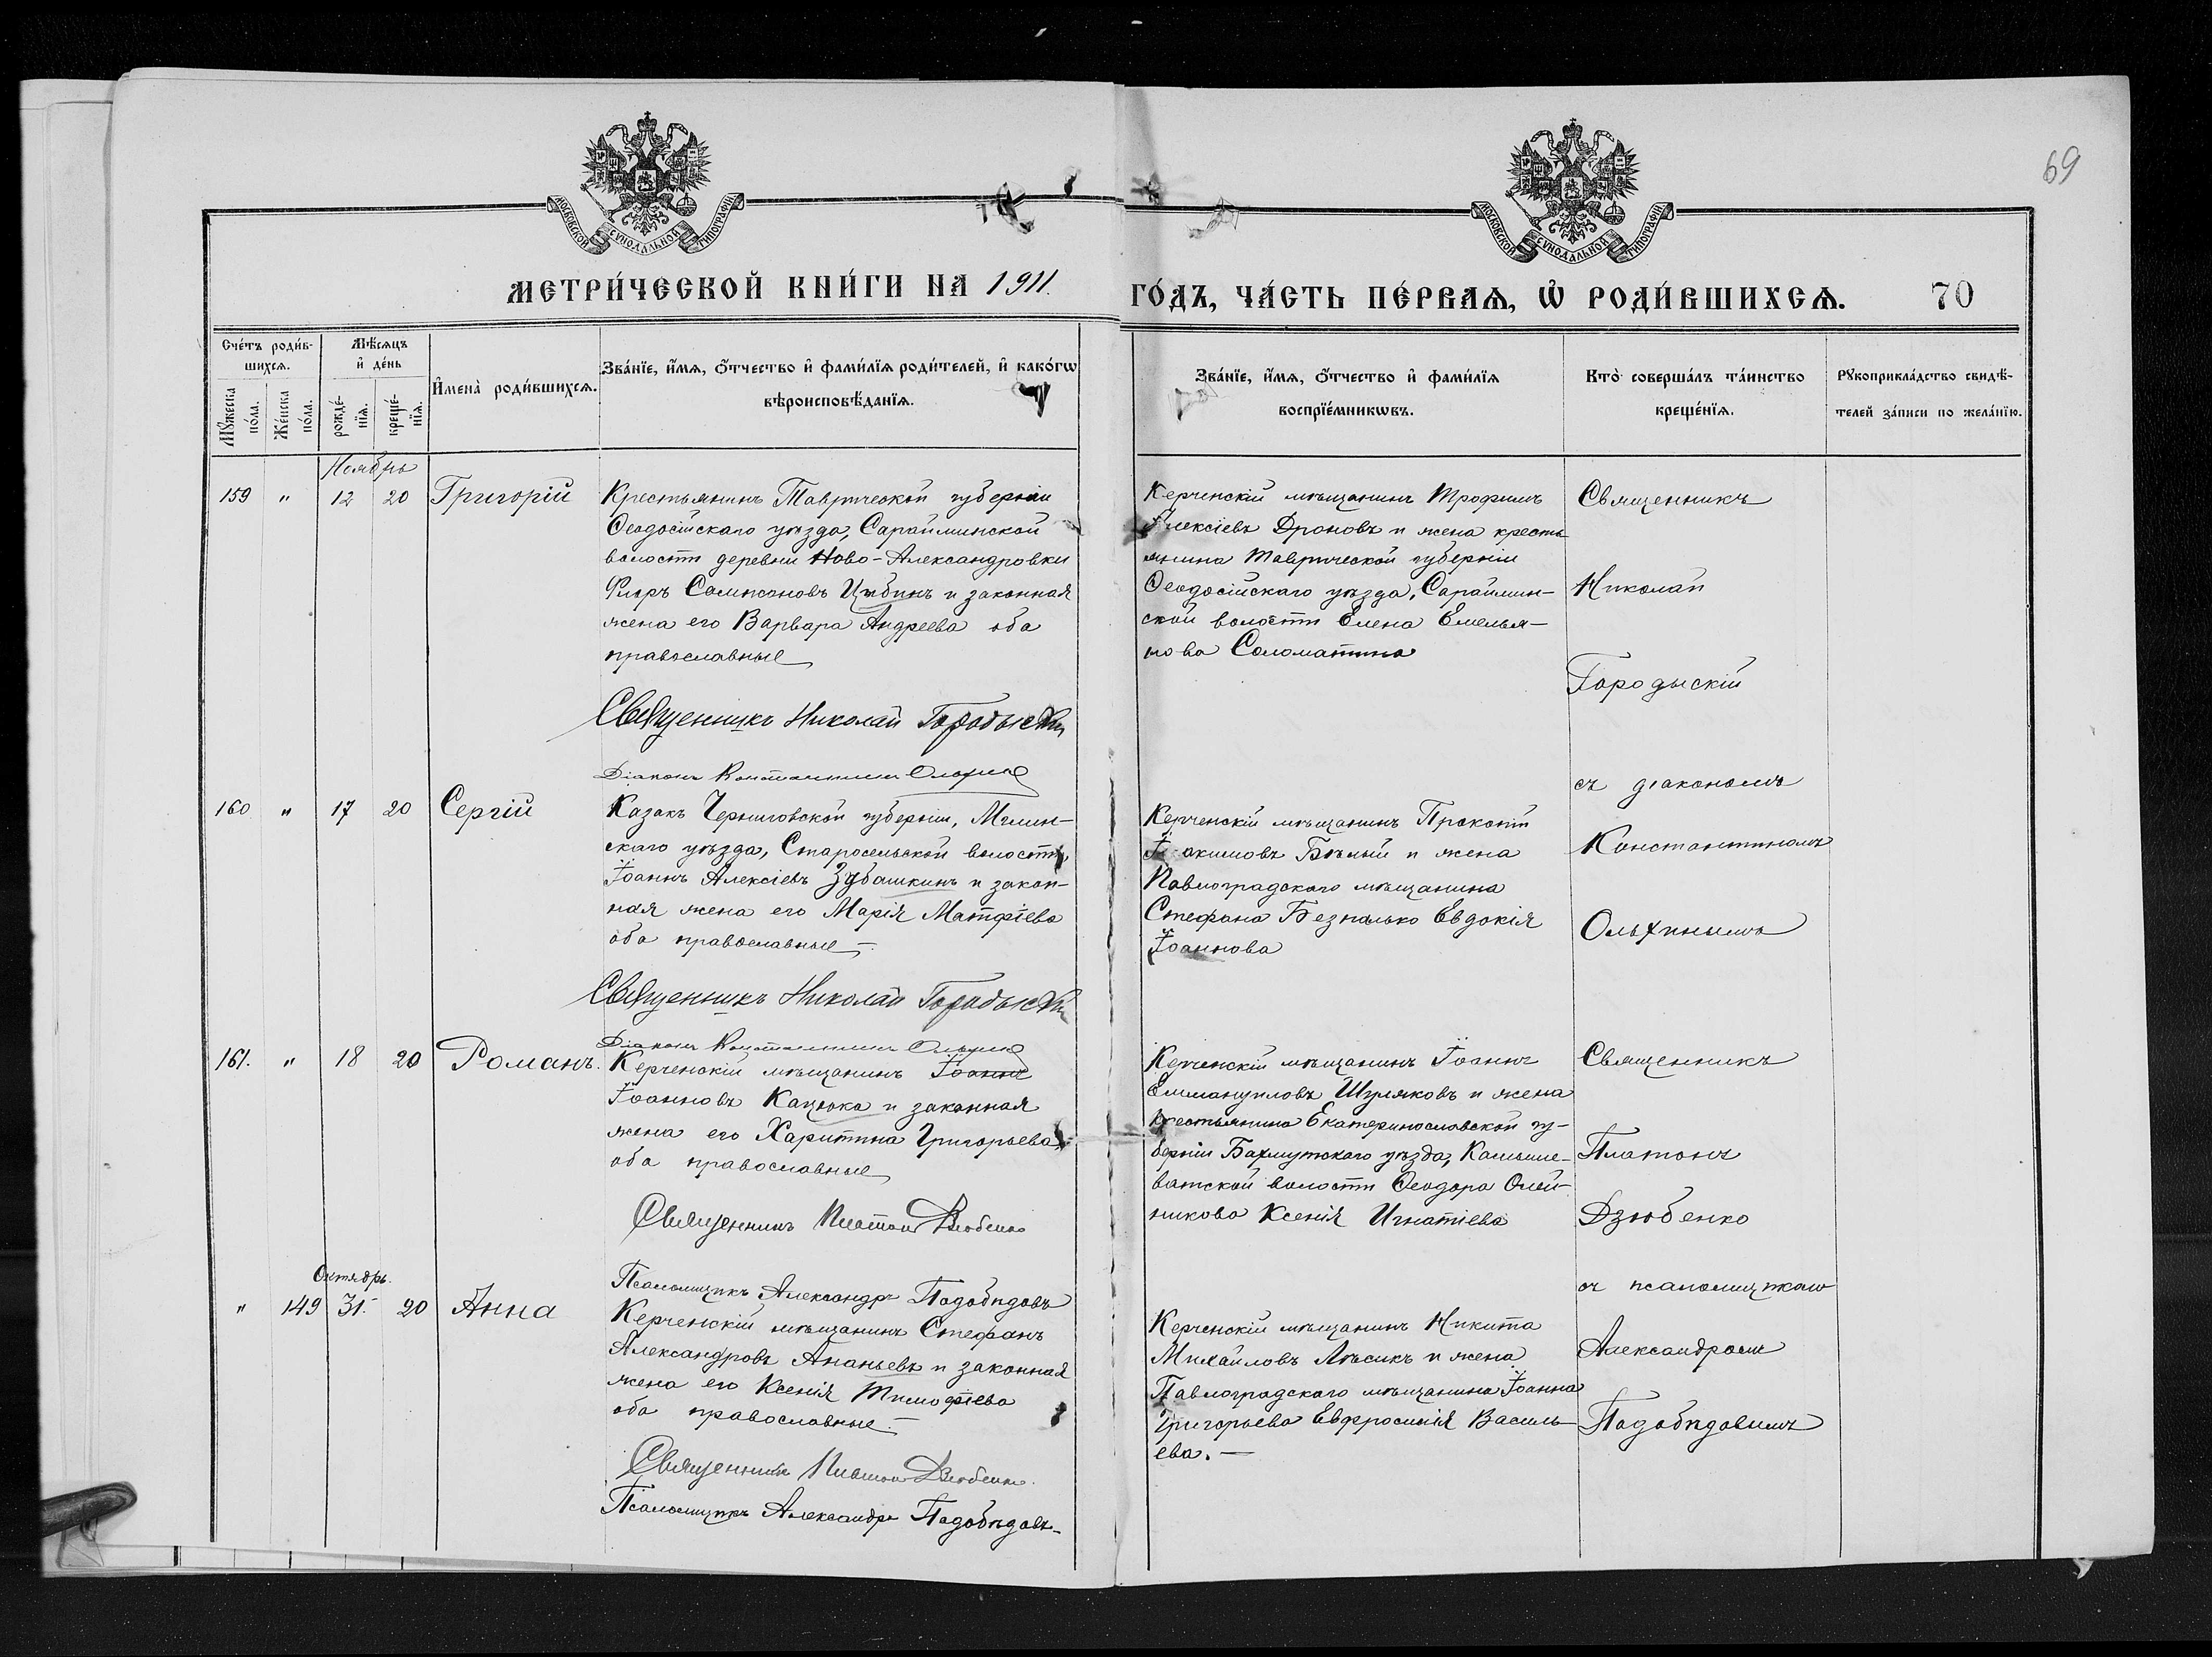 69
МОСКОВСКОЙ СУНОДАЛЬНОЙ ТИПОГРАФІИ
МОСКОВСКОЙ СУНОДАЛЬНОЙ ТИПОГРАФІИ
МЕТРИ́ЧЕСКОЙ КНИ́ГИ НА 1911.
ГО́ДЪ, ЧА́СТЬ ПЕ́РВАѦ, Ѡ҆ РОДИ́ВШИХСѦ. 70
Сче́тъ роди́в-
шихсѧ.
Мꙋ́жеска по́ла.
Же́нска по́ла.
Мѣ́сѧцъ
и҆ де́нь
рожде́-
нїѧ.
креще́-
нїѧ.
И҆мена̀ роди́вшихсѧ.
Зва́нїе, и҆́мѧ, ѻ҆́тчество и҆ фами́лїѧ роди́телей, и҆ како́гѡ
вѣроисповѣ́данїѧ.
Зва́нїе, и҆́мѧ, ѻ҆́тчество и҆ фами́лїѧ
воспрїе́мникѡвъ.
Кто̀ соверша́лъ та́инство
креще́нїѧ.
Рꙋкоприкла́дство свидѣ́-
телей за́писи по жела́нїю.
Ноябрь
159 " 12 20 Григорій
Крестьянинъ Таврической губерніи
Ѳеодосійскаго уѣзда, Сарайминской
волости деревни Ново-Александровки
Флоръ Цыбинъ и законная
жена его Варвара Андреева оба
православные
Священникъ Николай Городыскій
Діаконъ Константинъ
Керченскій мѣщанинъ Трофимъ
Алексіевъ Дроновъ и жена кресть-
янина Таврической губерніи
Ѳеодосійскаго уѣзда, Сараймин-
ской волости Елена Емелья-
нова Соломатина
Священникъ
Николай
Городыскій
съ діакономъ
Константиномъ
160 " 17 20 Сергій
Казакъ Черниговской губерніи, Мглин-
скаго уѣзда, Старосельской волости,
Іоаннъ Алексіевъ Зубашкинъ и закон-
ная жена его Марія Матфіева
оба православные.
Священникъ Николай Городыскій
Діаконъ Константинъ
Керченскій мѣщанинъ Прокопій
Іоакимовъ Бѣлый и жена
Павлоградскаго мѣщанина
Стефана Безпалько Евдокія
Іоаннова
161. " 18 20 Романъ.
Керченскій мѣщанинъ Іоаннъ
Іоанновъ Кацюка и законная
жена его Харитина Григорьева
оба православные
Священникъ Платонъ Дзюбенко
Псаломщикъ Александръ Подобѣдовъ
Керченскій мѣщанинъ Іоаннъ
Еммануиловъ Шуляковъ и жена
крестьянина Екатеринославской гу-
берніи Бахмутскаго уѣзда, Камыше-
ватской волости Ѳеодора Олей-
никова Ксенія Игнатіева
Священникъ
Платонъ
Дзюбенко
съ псаломщикомъ
Александромъ
Подобѣдовымъ
Октябрь.
" 149 31. 20 Анна
Керченскій мѣщанинъ Стефанъ
Александровъ Ананьевъ и законная
жена его Ксенія Тимофіева
оба православные.
Священникъ Платонъ Дзюбенко.
Псаломщикъ Александръ Подобѣдовъ
Керченскій мѣщанинъ Никита
Михайловъ Лѣсикъ и жена
Павлоградскаго мѣщанина Іоанна
Григорьева Евфросинія Василь-
ева. —